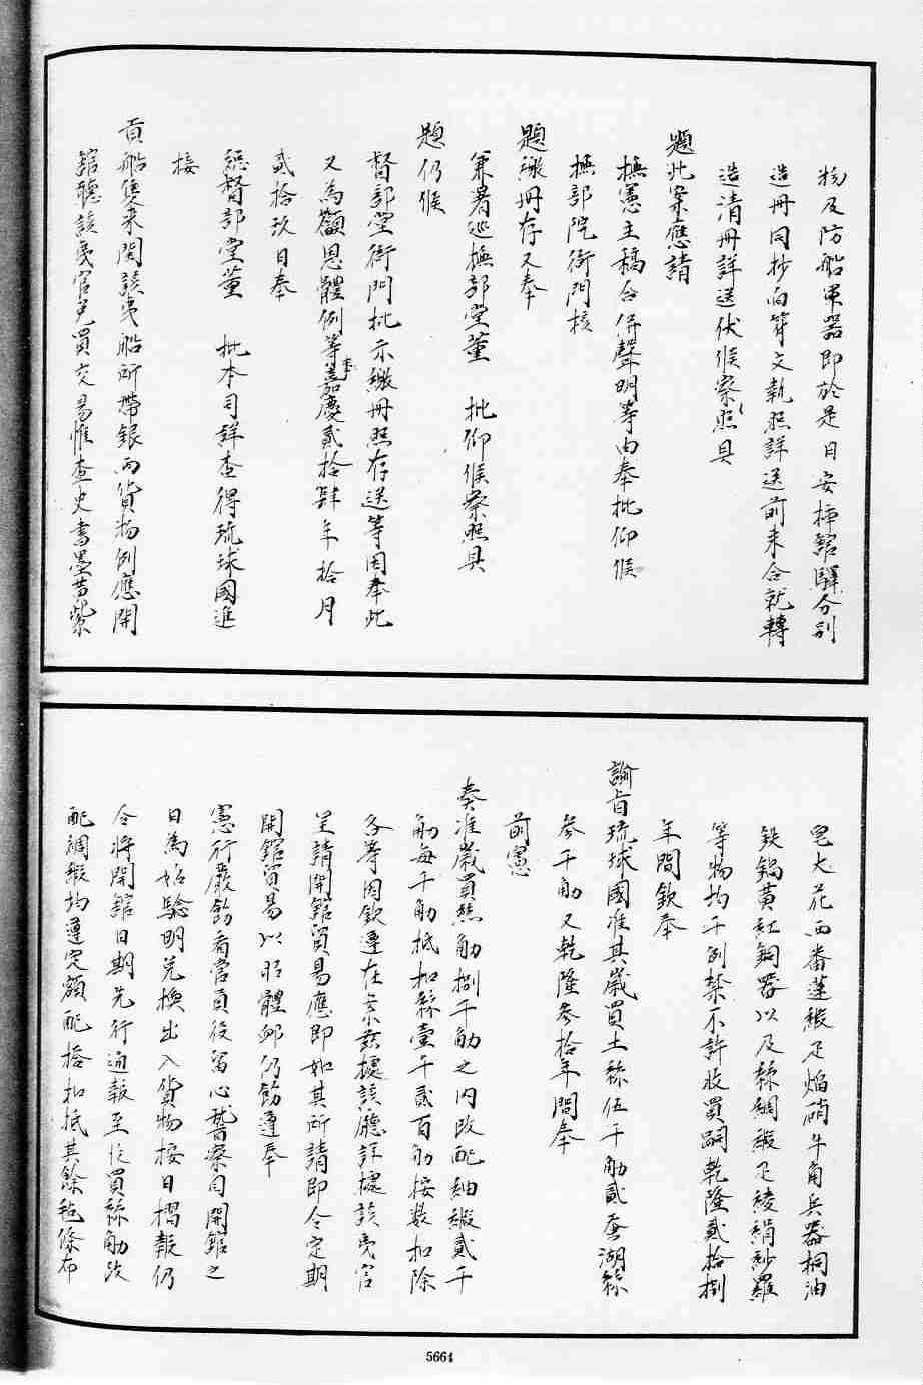 物及防船軍器即於是日安挿舘驛分别
造冊同抄白符文執照詳送前來合就轉
造清冊詳送伏候察照具
題此案應請
撫憲主稿合併聲明等由奉批仰候
撫部院衙門核
題繳冊存又奉
兼署巡撫部堂董　批仰候察照具
題仍候
督部堂衙門批示繳冊照存送等因奉此
又為籲恩體例等事嘉慶貳拾肆年拾月
貳拾玖日奉
總督部堂董　批本司詳查得琉球國進
接
貢船隻來閩該夷船所帶銀兩貨物例應開
舘聽該夷官兑買交易惟查史書墨黄紫
皂大花西番蓮緞疋焔硝牛角兵器桐油
鉄鍋黃紅銅器以及絲綢緞疋綾絹紗羅
等物均干例禁不許收買嗣乾隆貳拾捌
年間欽奉
諭旨琉球國准其歲買土絲伍千觔貳蚕湖絲
參千觔又乾隆參拾年間奉
前憲
奏准歲買絲觔捌千觔之内改配紬緞貳千
觔每千觔抵扣絲壹千貳百觔按数扣除
各等因欽遵在案兹據該廳詳據該夷官
呈請開舘貿易應即如其所請即令定期
開舘貿易以昭體卹仍飭遵奉
憲行嚴飭看當員役留心稽察自開舘之
日為始驗明兑換出入貨物按日摺報仍
令將開舘日期先行通報至所買絲觔改
配綢緞均遵定額配搭扣抵其餘毡條布
5664